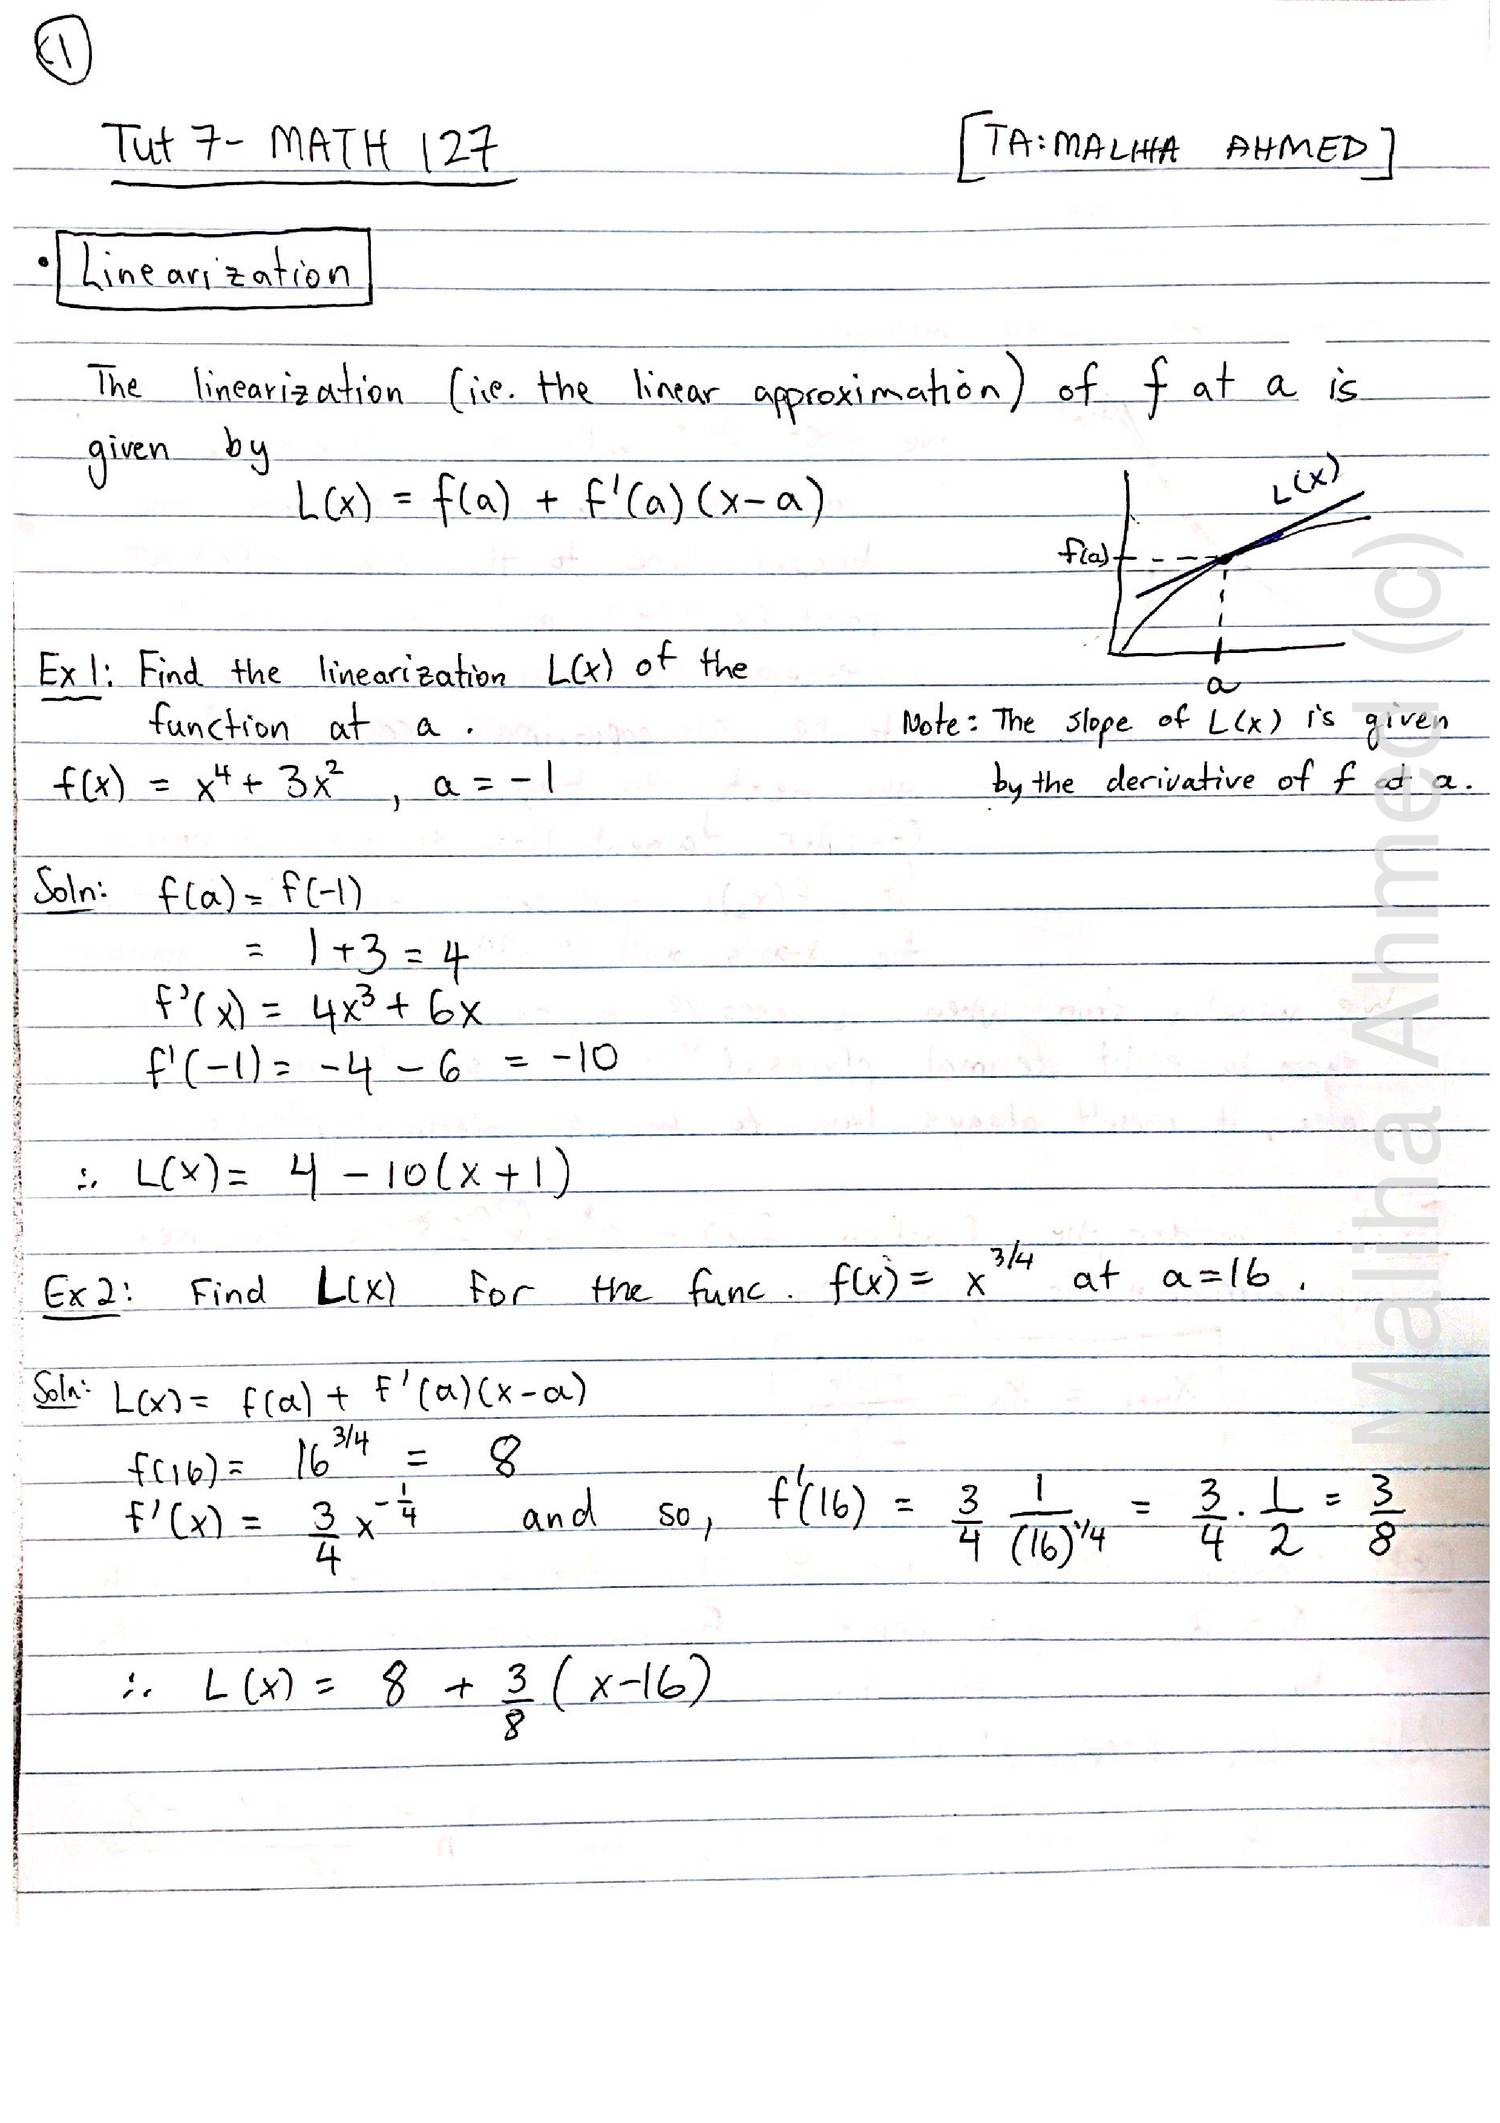 1
Tut 7- MATH 127
[TA: MALIHA AHMED]
• Linearization
The linearization (i.e. the linear approximation) of f at a is
given by
L(x) = f(a) + f'(a)(x-a)
L(x)
f(a)
a
Ex 1: Find the linearization L(x) of the
function at a.
f(x) = x⁴ + 3x², a = -1
Note: The slope of L(x) is given
by the derivative of f at a.
Soln: f(a) = f(-1)
= 1+3 = 4
f'(x) = 4x³ + 6x
f'(-1) = -4 - 6 = -10
∴ L(x) = 4 - 10(x+1)
Ex 2: Find L(x) for the func. f(x) = x^3/4 at a=16.
Soln: L(x) = f(a) + f'(a)(x-a)
f(16) = 16^3/4 = 8
f'(x) = 3/4 x^-1/4 and so, f'(16) = 3/4 1/(16)^1/4 = 3/4 · 1/2 = 3/8
∴ L(x) = 8 + 3/8 (x-16)
Maliha Ahmed (c)